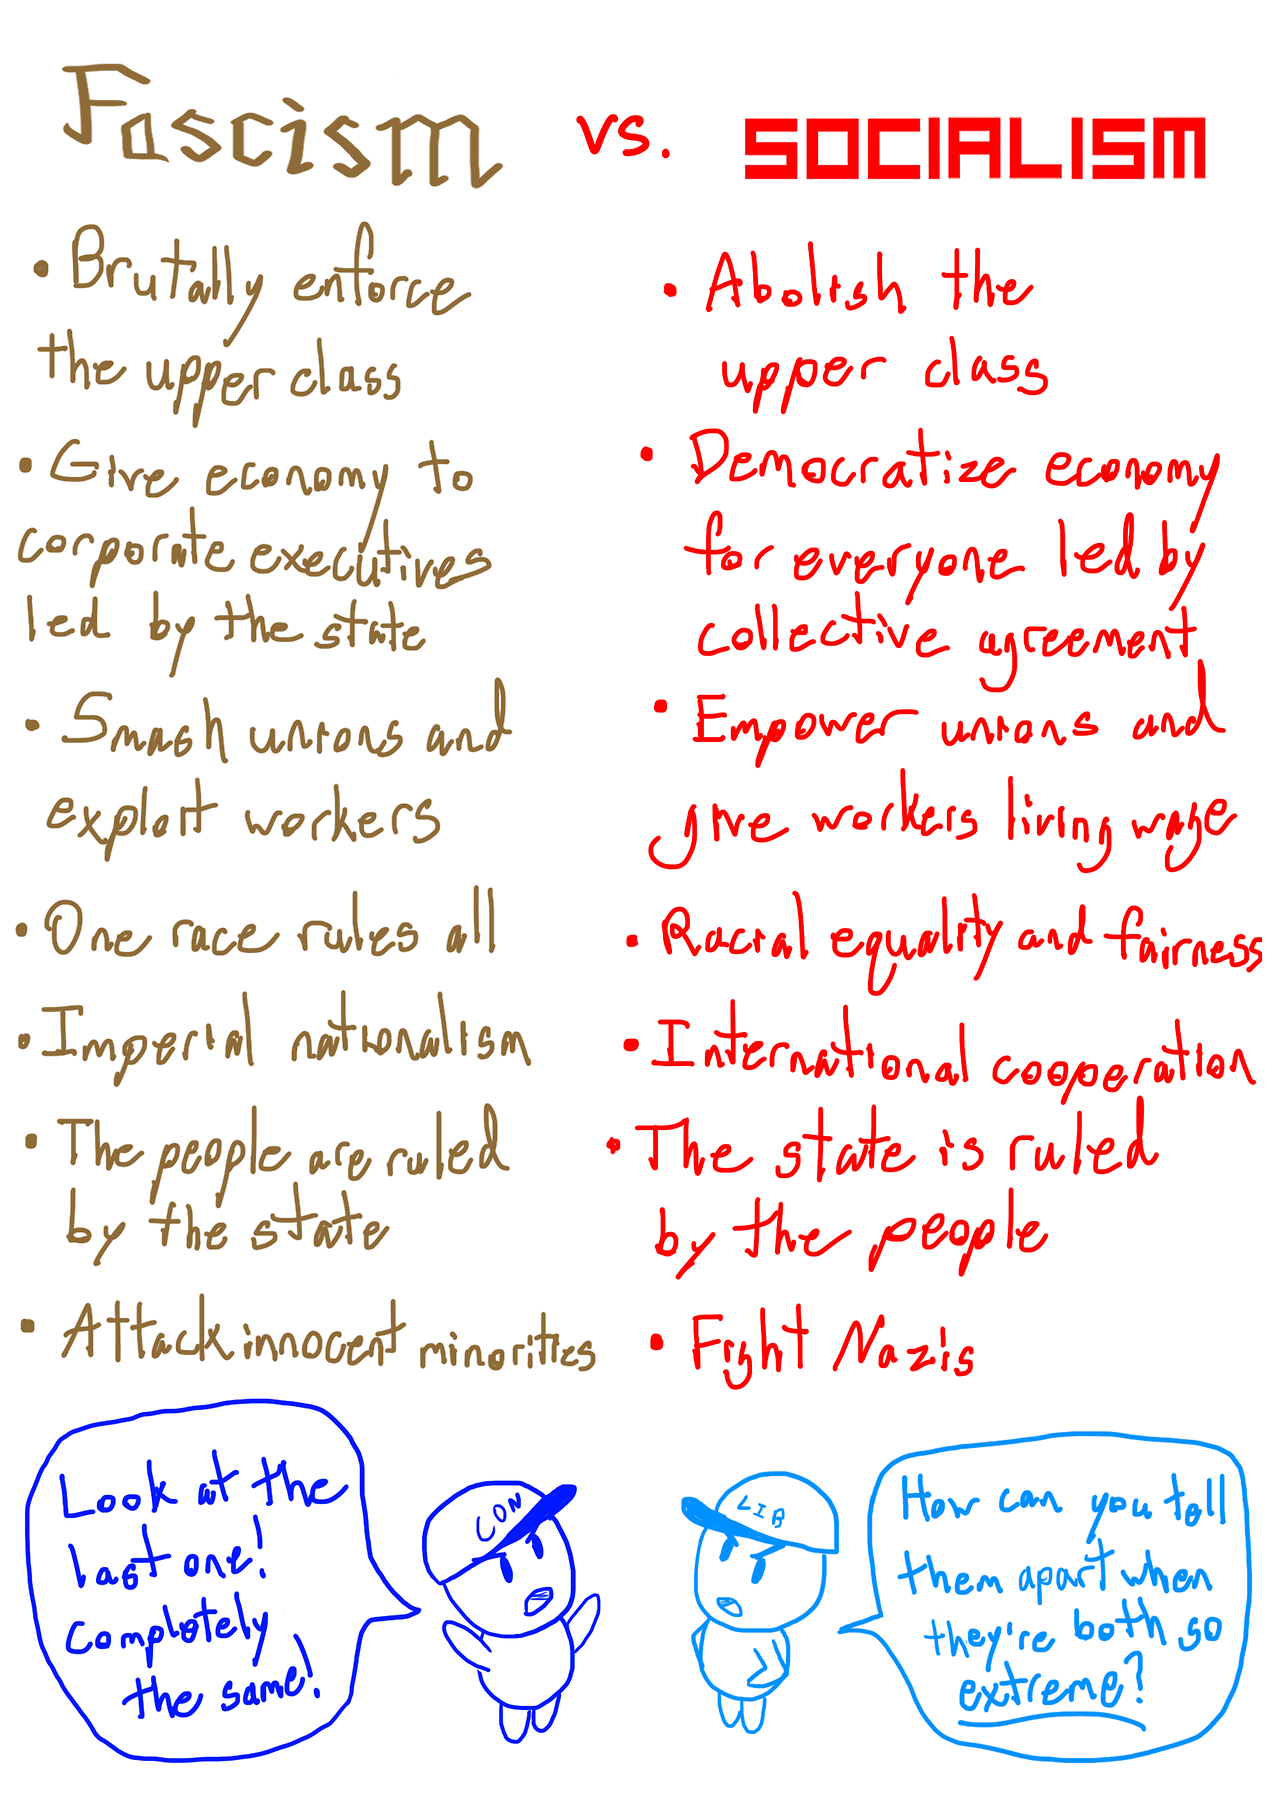 Fascism vs. SOCIALISM
• Brutally enforce
the upper class
• Give economy to
corporate executives
led by the state
• Smash unions and
exploit workers
• One race rules all
• Imperial nationalism
• The people are ruled
by the state
• Attack innocent minorities
• Abolish the
upper class
• Democratize economy
for everyone led by
collective agreement
• Empower unions and
give workers living wage
• Racial equality and fairness
• International cooperation
• The state is ruled
by the people
• Fight Nazis
Look at the
last one!
Completely
the same!
CON
LIB
How can you tell
them apart when
they're both so
extreme?